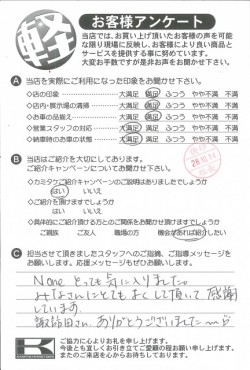 軽
お客様アンケート
当店では、お買い上げ頂いたお客様の声を可能
な限り現場に反映し、お客様により良い商品と
サービスを提供する事に努めています。
大変お手数ですが是非お声をお聞かせ下さい。
A 当店を実際にご利用になった印象をお聞かせ下さい。
◇店の印象 大満足 満足 ふつう やや不満 不満
◇店内・展示場の清掃 大満足 満足 ふつう やや不満 不満
◇お車の品揃え 大満足 満足 ふつう やや不満 不満
◇営業スタッフの対応 大満足 満足 ふつう やや不満 不満
◇納車時のお車の状態 大満足 満足 ふつう やや不満 不満
B 当店はご紹介を大切にしております。
ご紹介キャンペーンについてお聞かせ下さい。
◇カミタケご紹介キャンペーンのご説明はありましたでしょうか
はい いいえ
◇ご紹介を頂けますでしょうか
はい いいえ
◇具体的にご紹介頂ける方とのご関係をお聞かせ頂けますでしょうか
ご親族 ご友人 職場の方 機会があれば紹介したい
C 担当させて頂きましたスタッフへのご指摘、ご指導メッセージを
お願いします。応援メッセージもぜひお願いします。
None とっても気に入りました。
みなさんにとてもよくして頂いて感謝
しています。
諏訪田さん、ありがとうございました〜
ご協力に心よりお礼を申し上げます。
今後とも宜しくお引き立てご愛顧の程お願い申し上げます。
またのご来店を心からお待ちしております。